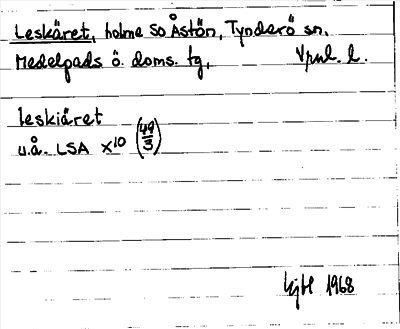 Leskäret, holme SO Åstön, Tynderö sn.
Medelpads ö. doms. tg, Vpnl. l.
leskiäret
u.å. LSA X10 (49/3)
1968